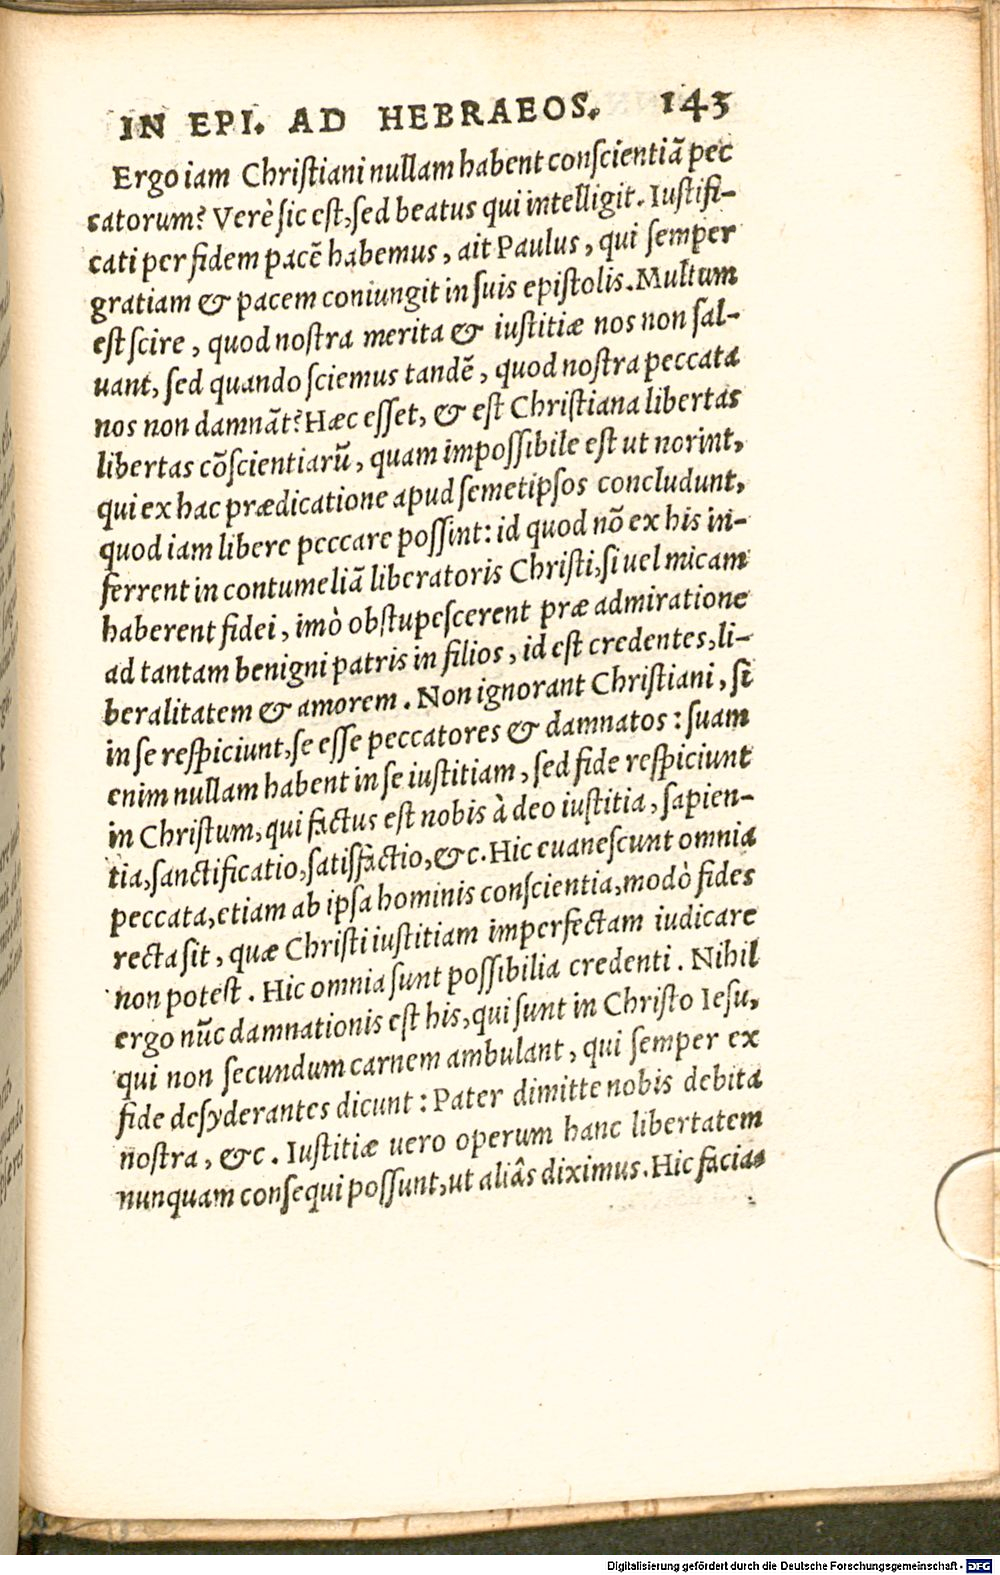 IN EPI. AD HEBRAEOS. 143
Ergo iam Chriſtiani nullam habent conſcientiã pec
catorum? Verè ſic eſt, ſed beatus qui intelligit. Iuſtifi-
cati per fidem pacẽ habemus, ait Paulus, qui ſemper
gratiam & pacem coniungit in ſuis epiſtolis. Multum
eſt ſcire, quod noſtra merita & iuſtitiæ nos non ſal-
uant, ſed quando ſciemus tandẽ, quod noſtra peccata
nos non damnãt? Hæc eſſet, & eſt Chriſtiana libertas
libertas cõſcientiarũ, quam impoſſibile eſt ut norint,
qui ex hac prædicatione apud ſemetipſos concludunt,
quod iam libere peccare poſſint: id quod nõ ex his in-
ferrent in contumeliã liberatoris Chriſti, ſi uel micam
haberent fidei, imò obſtupeſcerent præ admiratione
ad tantam benigni patris in filios, id eſt credentes, li-
beralitatem & amorem. Non ignorant Chriſtiani, ſi
in ſe reſpiciunt, ſe eſſe peccatores & damnatos: ſuam
enim nullam habent in ſe iuſtitiam, ſed fide reſpiciunt
in Chriſtum, qui factus eſt nobis à deo iuſtitia, ſapien-
tia, ſanctificatio, ſatiſfactio, &c. Hic euaneſcunt omnia
peccata, etiam ab ipſa hominis conſcientia, modò fides
recta ſit, quæ Chriſti iuſtitiam imperfectam iudicare
non poteſt. Hic omnia ſunt poſſibilia credenti. Nihil
ergo nũc damnationis eſt his, qui ſunt in Chriſto Ieſu,
qui non ſecundum carnem ambulant, qui ſemper ex
fide deſyderantes dicunt: Pater dimitte nobis debita
noſtra, &c. Iuſtitiæ uero operum hanc libertatem
nunquam conſequi poſſunt, ut aliâs diximus. Hic facias
Digitalisierung gefördert durch die Deutsche Forschungsgemeinschaft - DFG